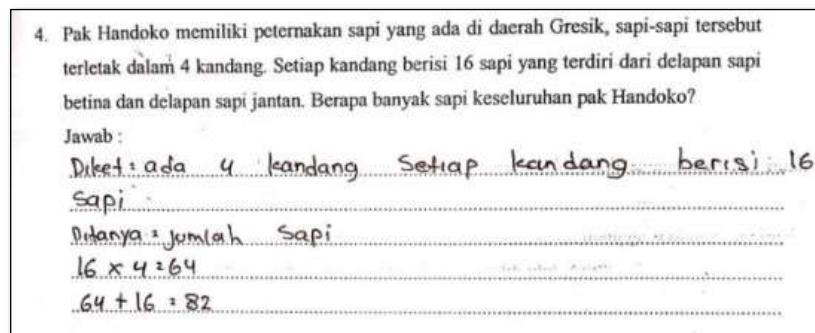 4. Pak Handoko memiliki peternakan sapi yang ada di daerah Gresik, sapi-sapi tersebut
terletak dalam 4 kandang. Setiap kandang berisi 16 sapi yang terdiri dari delapan sapi
betina dan delapan sapi jantan. Berapa banyak sapi keseluruhan pak Handoko?
Jawab :
Diket : ada 4 kandang Setiap kandang berisi 16
sapi
Ditanya : jumlah sapi
16 x 4 = 64
64 + 16 = 82